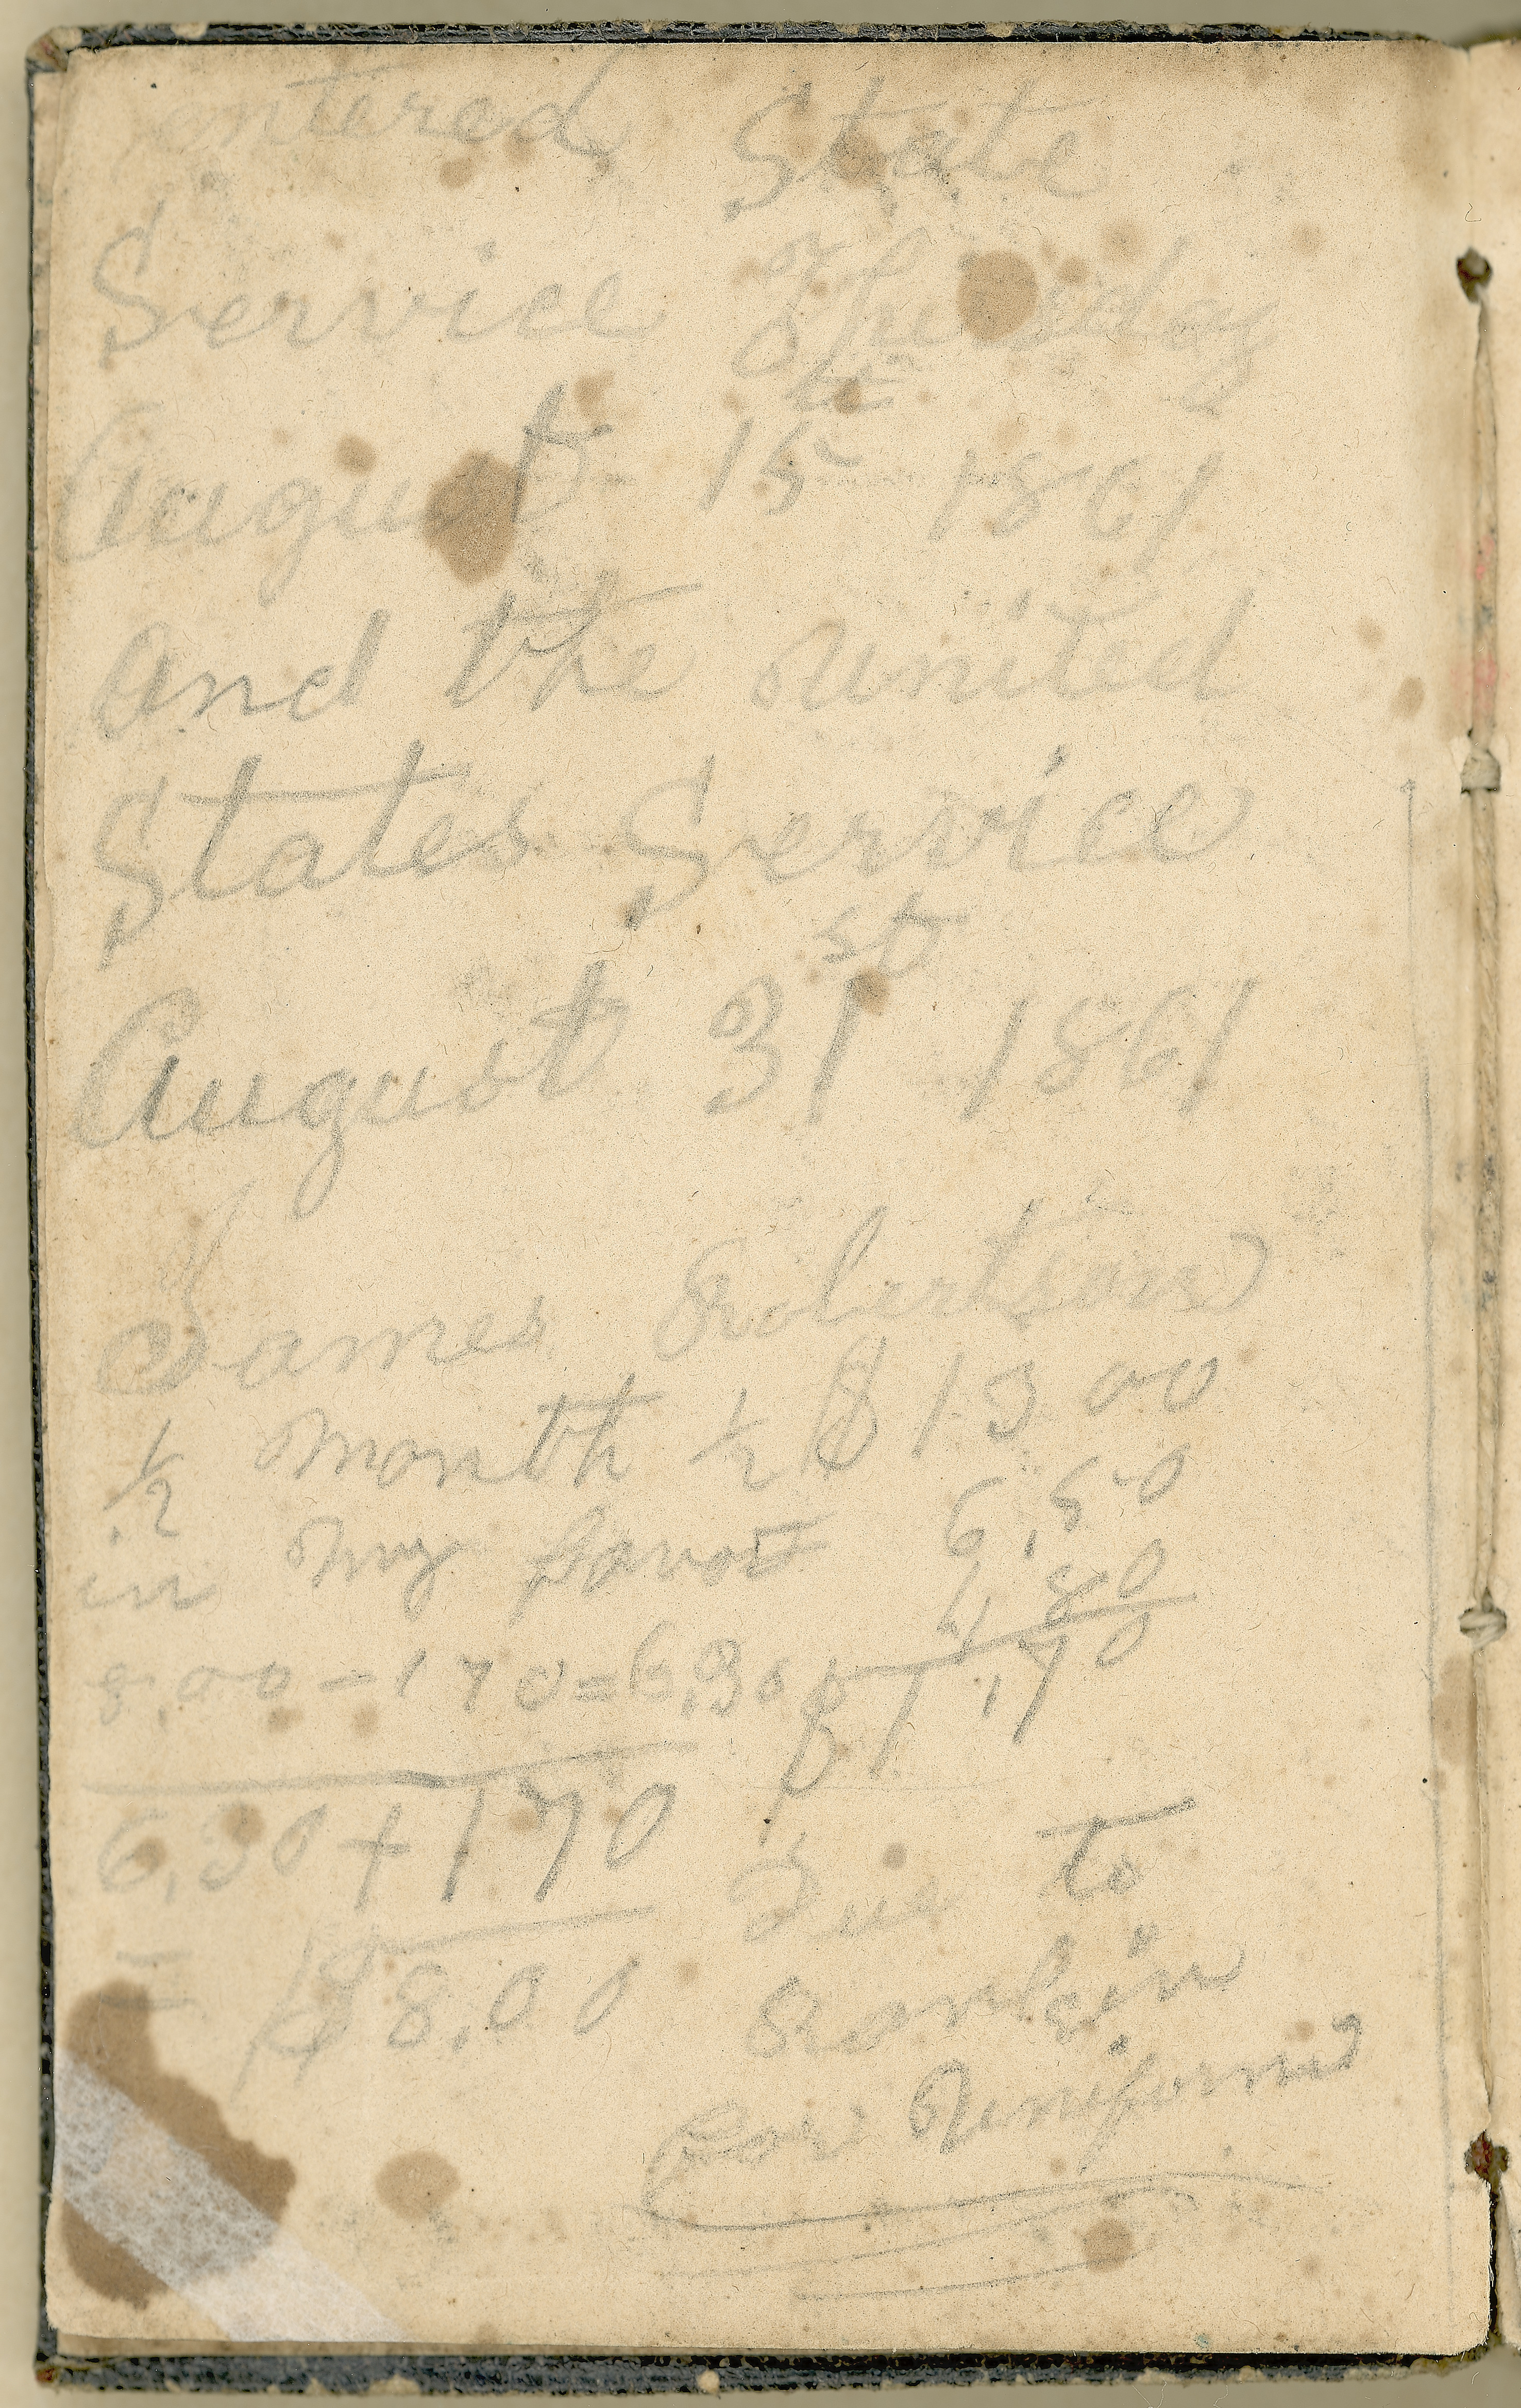 entered State
Service Thursday
August 15th 1861
and the United
States Service
August 31st 1861
James Robertson
1/2 Month 1/2 $13 00
in my favor 6,50
4,80
8,00 - 170 = 6,30 $1,70
6,30 + 170
= $8.00 Due to
Rankin
for Uniform